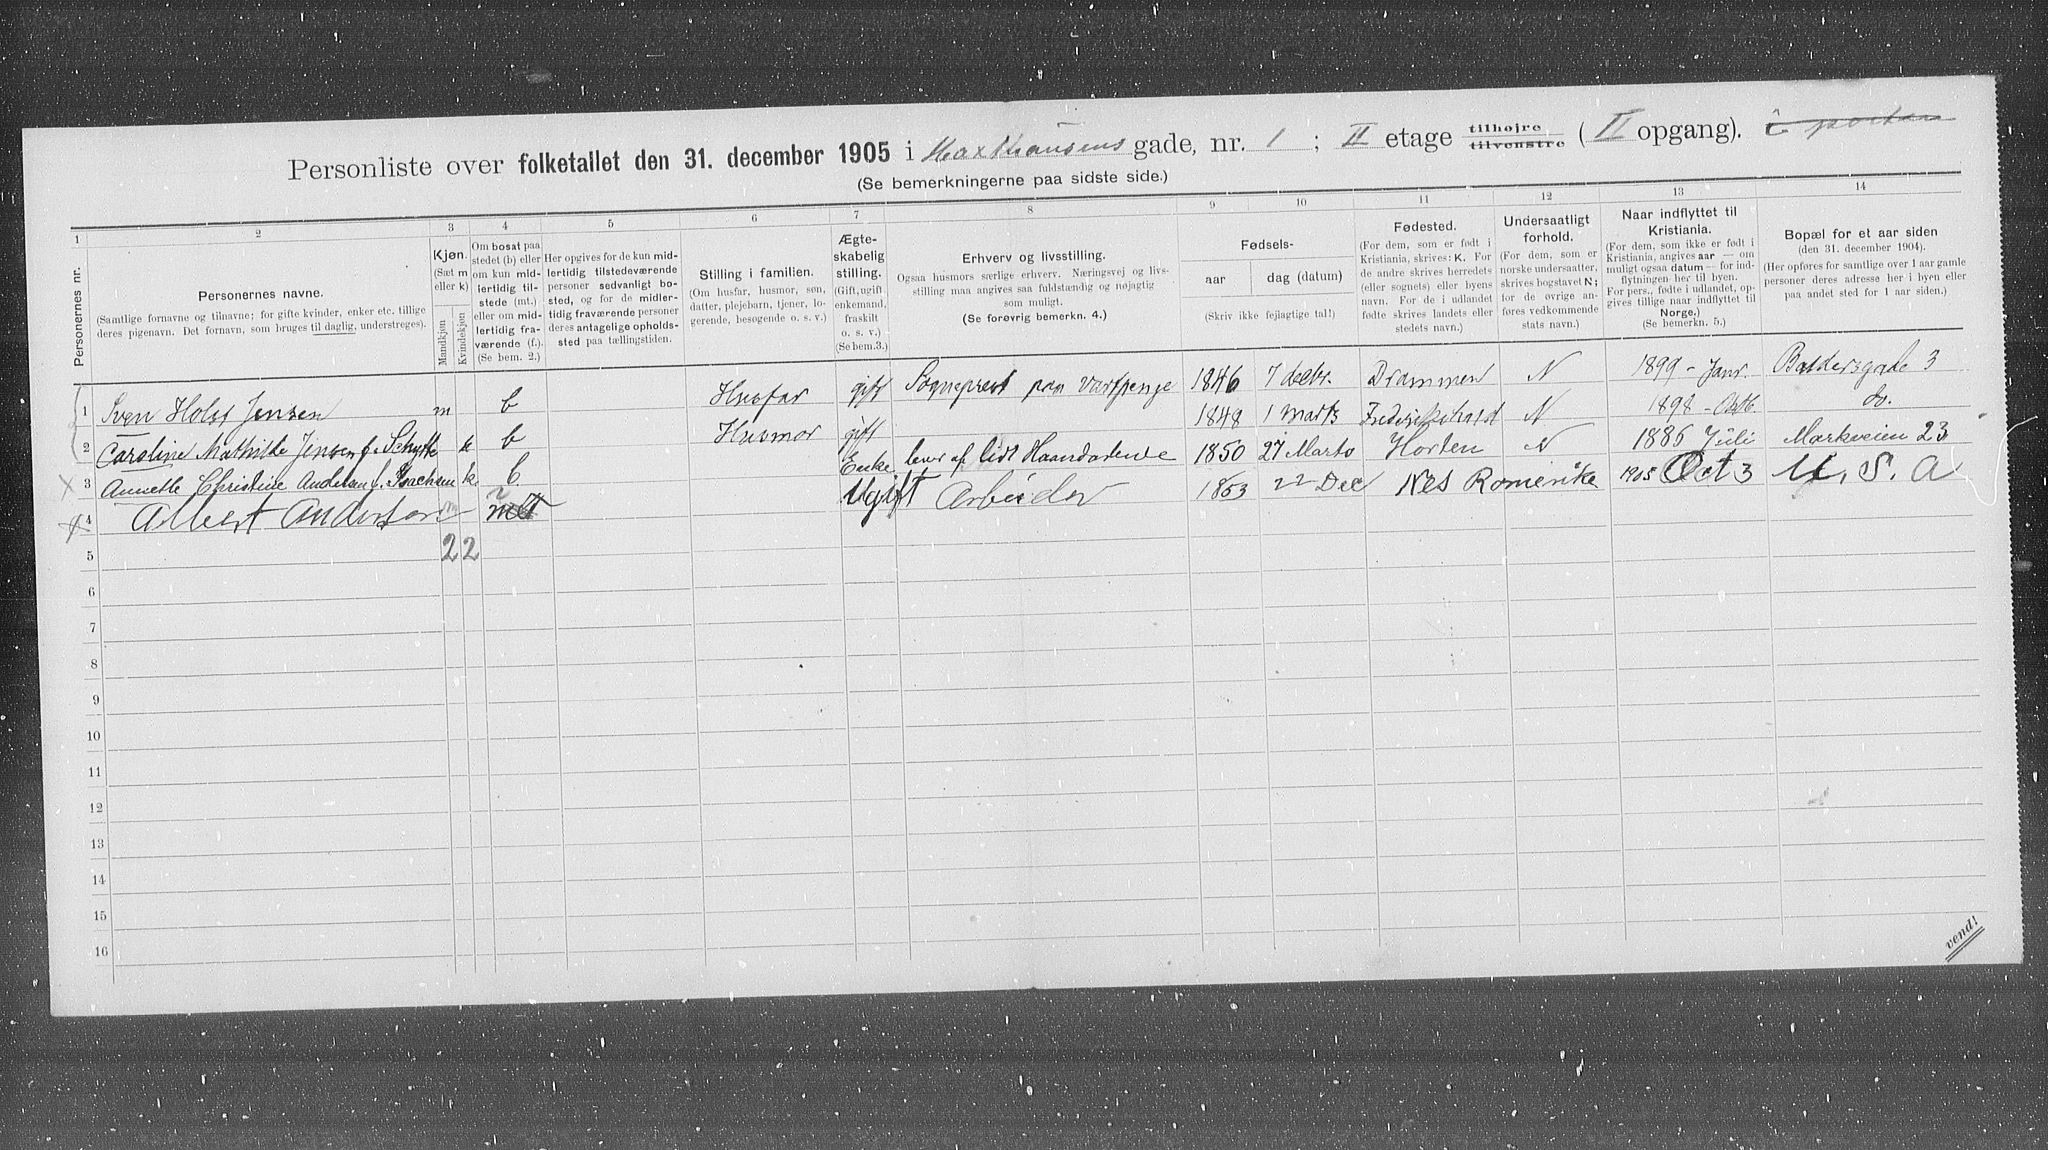 Personliste over folketallet den 31. december 1905 i Maxthausens gade, nr. 1 ; II etage tilhøjre tilvenstre ( II opgang). i porten
(Se bemerkningerne paa sidste side.)
1 2 3 4 5 6 7 8 9 10 11 12 13 14
Personernes nr.
Personernes navne.
(Samtlige fornavne og tilnavne; for gifte kvinder, enker etc. tillige
deres pigenavn. Det fornavn, som bruges til daglig, understreges).
Kjøn.
(Sæt m
eller k)
Mandkjøn
Kvindekjøn
Om bosat paa
stedet (b) eller
om kun mid-
lertidig til-
stede (mt.)
eller om mid-
lertidig fra-
værende (f.).
(Se bem. 2.)
Her opgives for de kun mid-
lertidig tilstedeværende
personer sedvanligt bo-
sted, og for de midler-
tidig fraværende personer
deres antagelige opholds-
sted paa tællingstiden.
Stilling i familien.
(Om husfar, husmor, søn,
datter, plejebarn, tjener, lo-
gerende, besøgende o. s. v.)
Ægte-
skabelig
stilling.
(Gift, ugift
enkemand,
fraskilt
o. s. v.)
(Se bem.3.)
Erhverv og livsstilling.
Ogsaa husmors særlige erhverv. Næringsvej og livs-
stilling maa angives saa fuldstændig og nøjagtig
som muligt.
(Se forøvrig bemerkn. 4.)
Fødsels-
aar
dag (datum)
(Skriv ikke fejlagtige tal!)
Fødested.
(For dem, som er født i
Kristiania, skrives: K. For
de andre skrives herredets
(eller sognets) eller byens
navn. For de i udlandet
fødte skrives landets eller
stedets navn.)
Undersaatligt
forhold.
(For dem, som er
norske undersaatter,
skrives bogstavet N;
for de øvrige an-
føres vedkommende
stats navn.)
Naar indflyttet til
Kristiania.
(For dem, som ikke er født i
Kristiania, angives aar — om
muligt ogsaa datum — for ind-
flytningen her til byen.
For pers., fødte i udlandet, op-
gives tillige naar indflyttet til
Norge.)
(Se bemerkn. 5.)
Bopæl for et aar siden
(den 31. december 1904).
(Her opføres for samtlige over 1 aar gamle
personer deres adresse her i byen eller
paa andet sted for 1 aar siden.)
1 Sven Holst Jensen m b Husfar gift Sogneprest paa Vartpenge 1846 7 decbr. Drammen N 1899 - Janr. Baldersgade 3
2 Caroline Mathilde Jensen f. Schytte k b Husmor gift 1848 1 Marts Frederikshald N 1898 - Octb. do.
3 Annette Christine Andersen f. Isachsen k. b. Enke lever af lidt Haandarbeide 1850 27 Marts Horten N 1886 Juli Markveien 23
4 Albert Anderson m mt Ugift Arbeider 1853 22 Dec Nes Romerike 1905 Oct 3 U. S. A
5 2 2
6
7
8
9
10
11
12
13
14
15
16
vend!